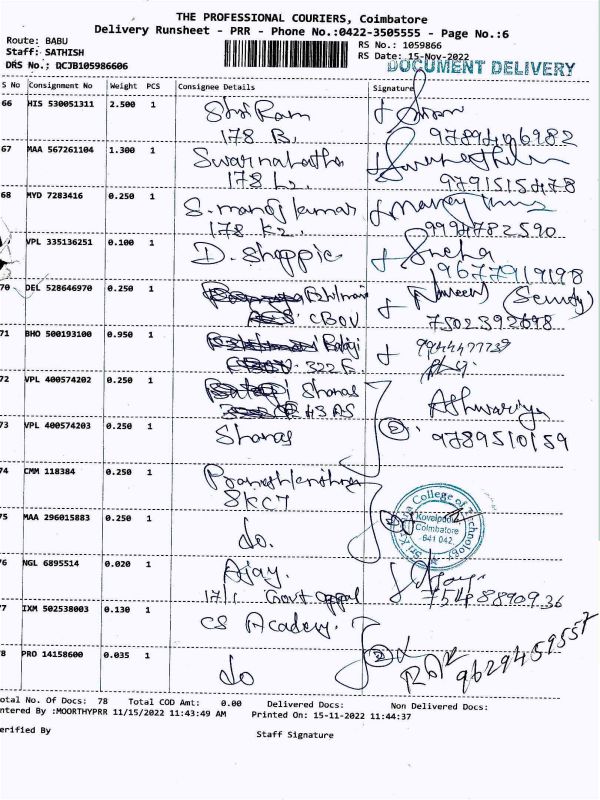 THE PROFESSIONAL COURIERS, Coimbatore
Delivery Runsheet - PRR - Phone No.:0422-3505555 - Page No.:6
Route: BABU
Staff: SATHISH
DRS No.; DCJB105986606
RS No.: 1059866
RS Date: 15-Nov-2022
DOCUMENT DELIVERY
S No Consignment No Weight PCS Consignee Details Signature
66 HIS 530051311 2.500 1 Shri Ram
178 B. 9789496982
67 MAA 567261104 1.300 1 Swarnalatha
178 L2. 9791515478
68 MYD 7283416 0.250 1 S. manoj kumar
178 K2. 9994782590
VPL 335136251 0.100 1 D. Shoppie Sneha
9677919198
70 DEL 528646970 0.250 1 Naveen
CBOV 7502392698
71 BHO 500193100 0.950 1 Balaji 9944477739
322 E.
72 VPL 400574202 0.250 1 Sharas Ashwariya
73 VPL 400574203 0.250 1 Sharas 2 9789510159
74 CMM 118384 0.250 1
SKCT
75 MAA 296015883 0.250 1 do.
Sri Krishna College of Technology
Kovaipudur
Coimbatore
641 042
76 NGL 6895514 0.020 1 Ajay. Ajay.
171 Govt 7548890936
77 IXM 502538003 0.130 1 CS Academy.
78 PRO 14158600 0.035 1 do 2 9629459557
otal No. Of Docs: 78 Total COD Amt: 0.00 Delivered Docs: Non Delivered Docs:
ntered By :MOORTHYPRR 11/15/2022 11:43:49 AM Printed On: 15-11-2022 11:44:37
erified By Staff Signature